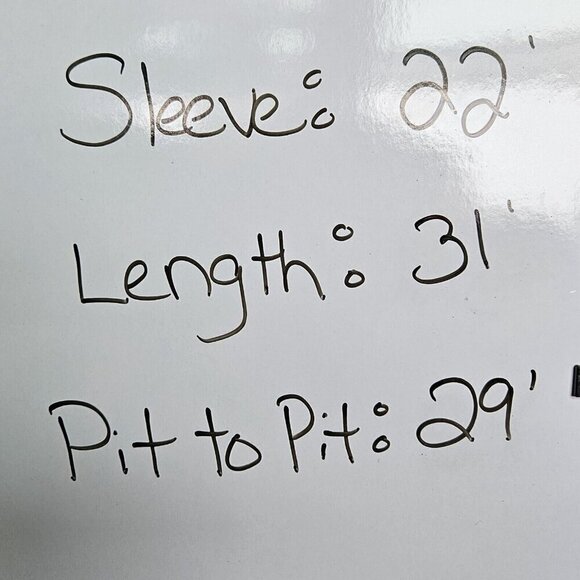 Sleeve: 22'
Length: 31'
Pit to Pit: 29'